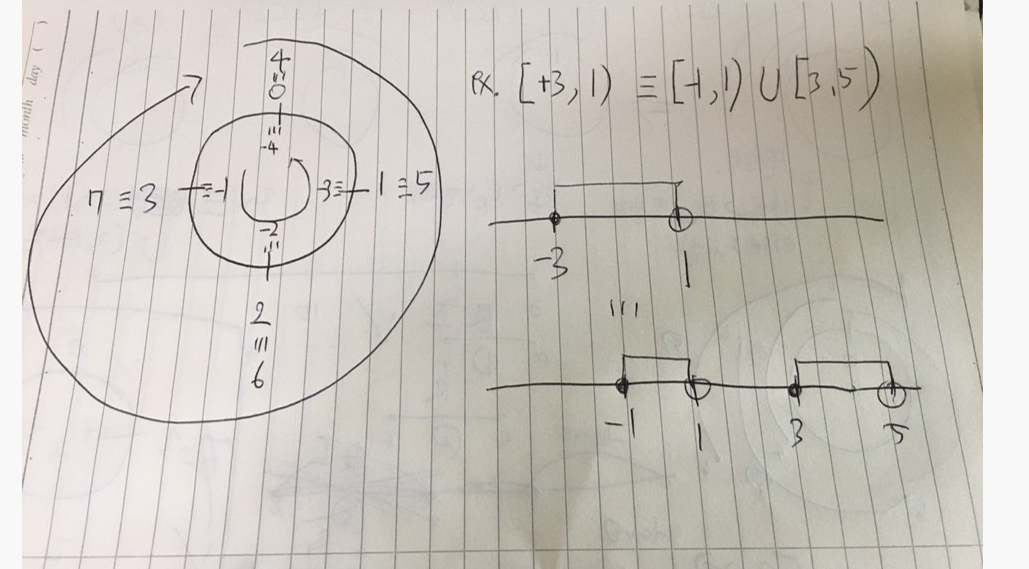 month day ( )
4
=
0
≡
-4
7 ≡ 3 ≡ -1 -3 ≡ 1 ≡ 5
-2
≡
2
≡
6
EX. [+3, 1) ≡ [-1, 1) ∪ [3, 5)
-3 1
≡
-1 1 3 5